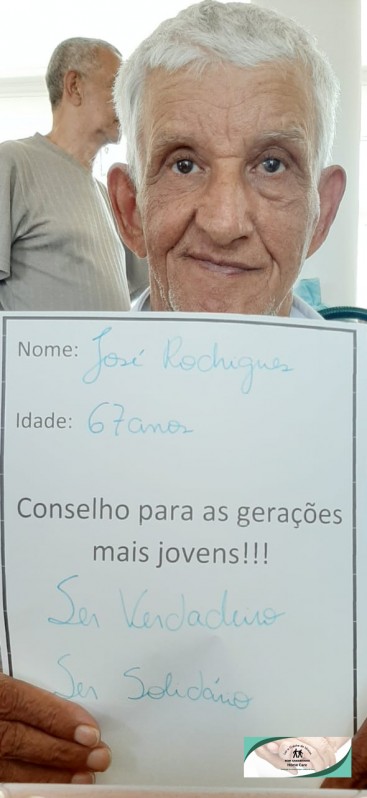 Nome: José Rodrigues
Idade: 67 anos
Conselho para as gerações
mais jovens!!!
Ser Verdadeiro
Ser Solidário
Home Care